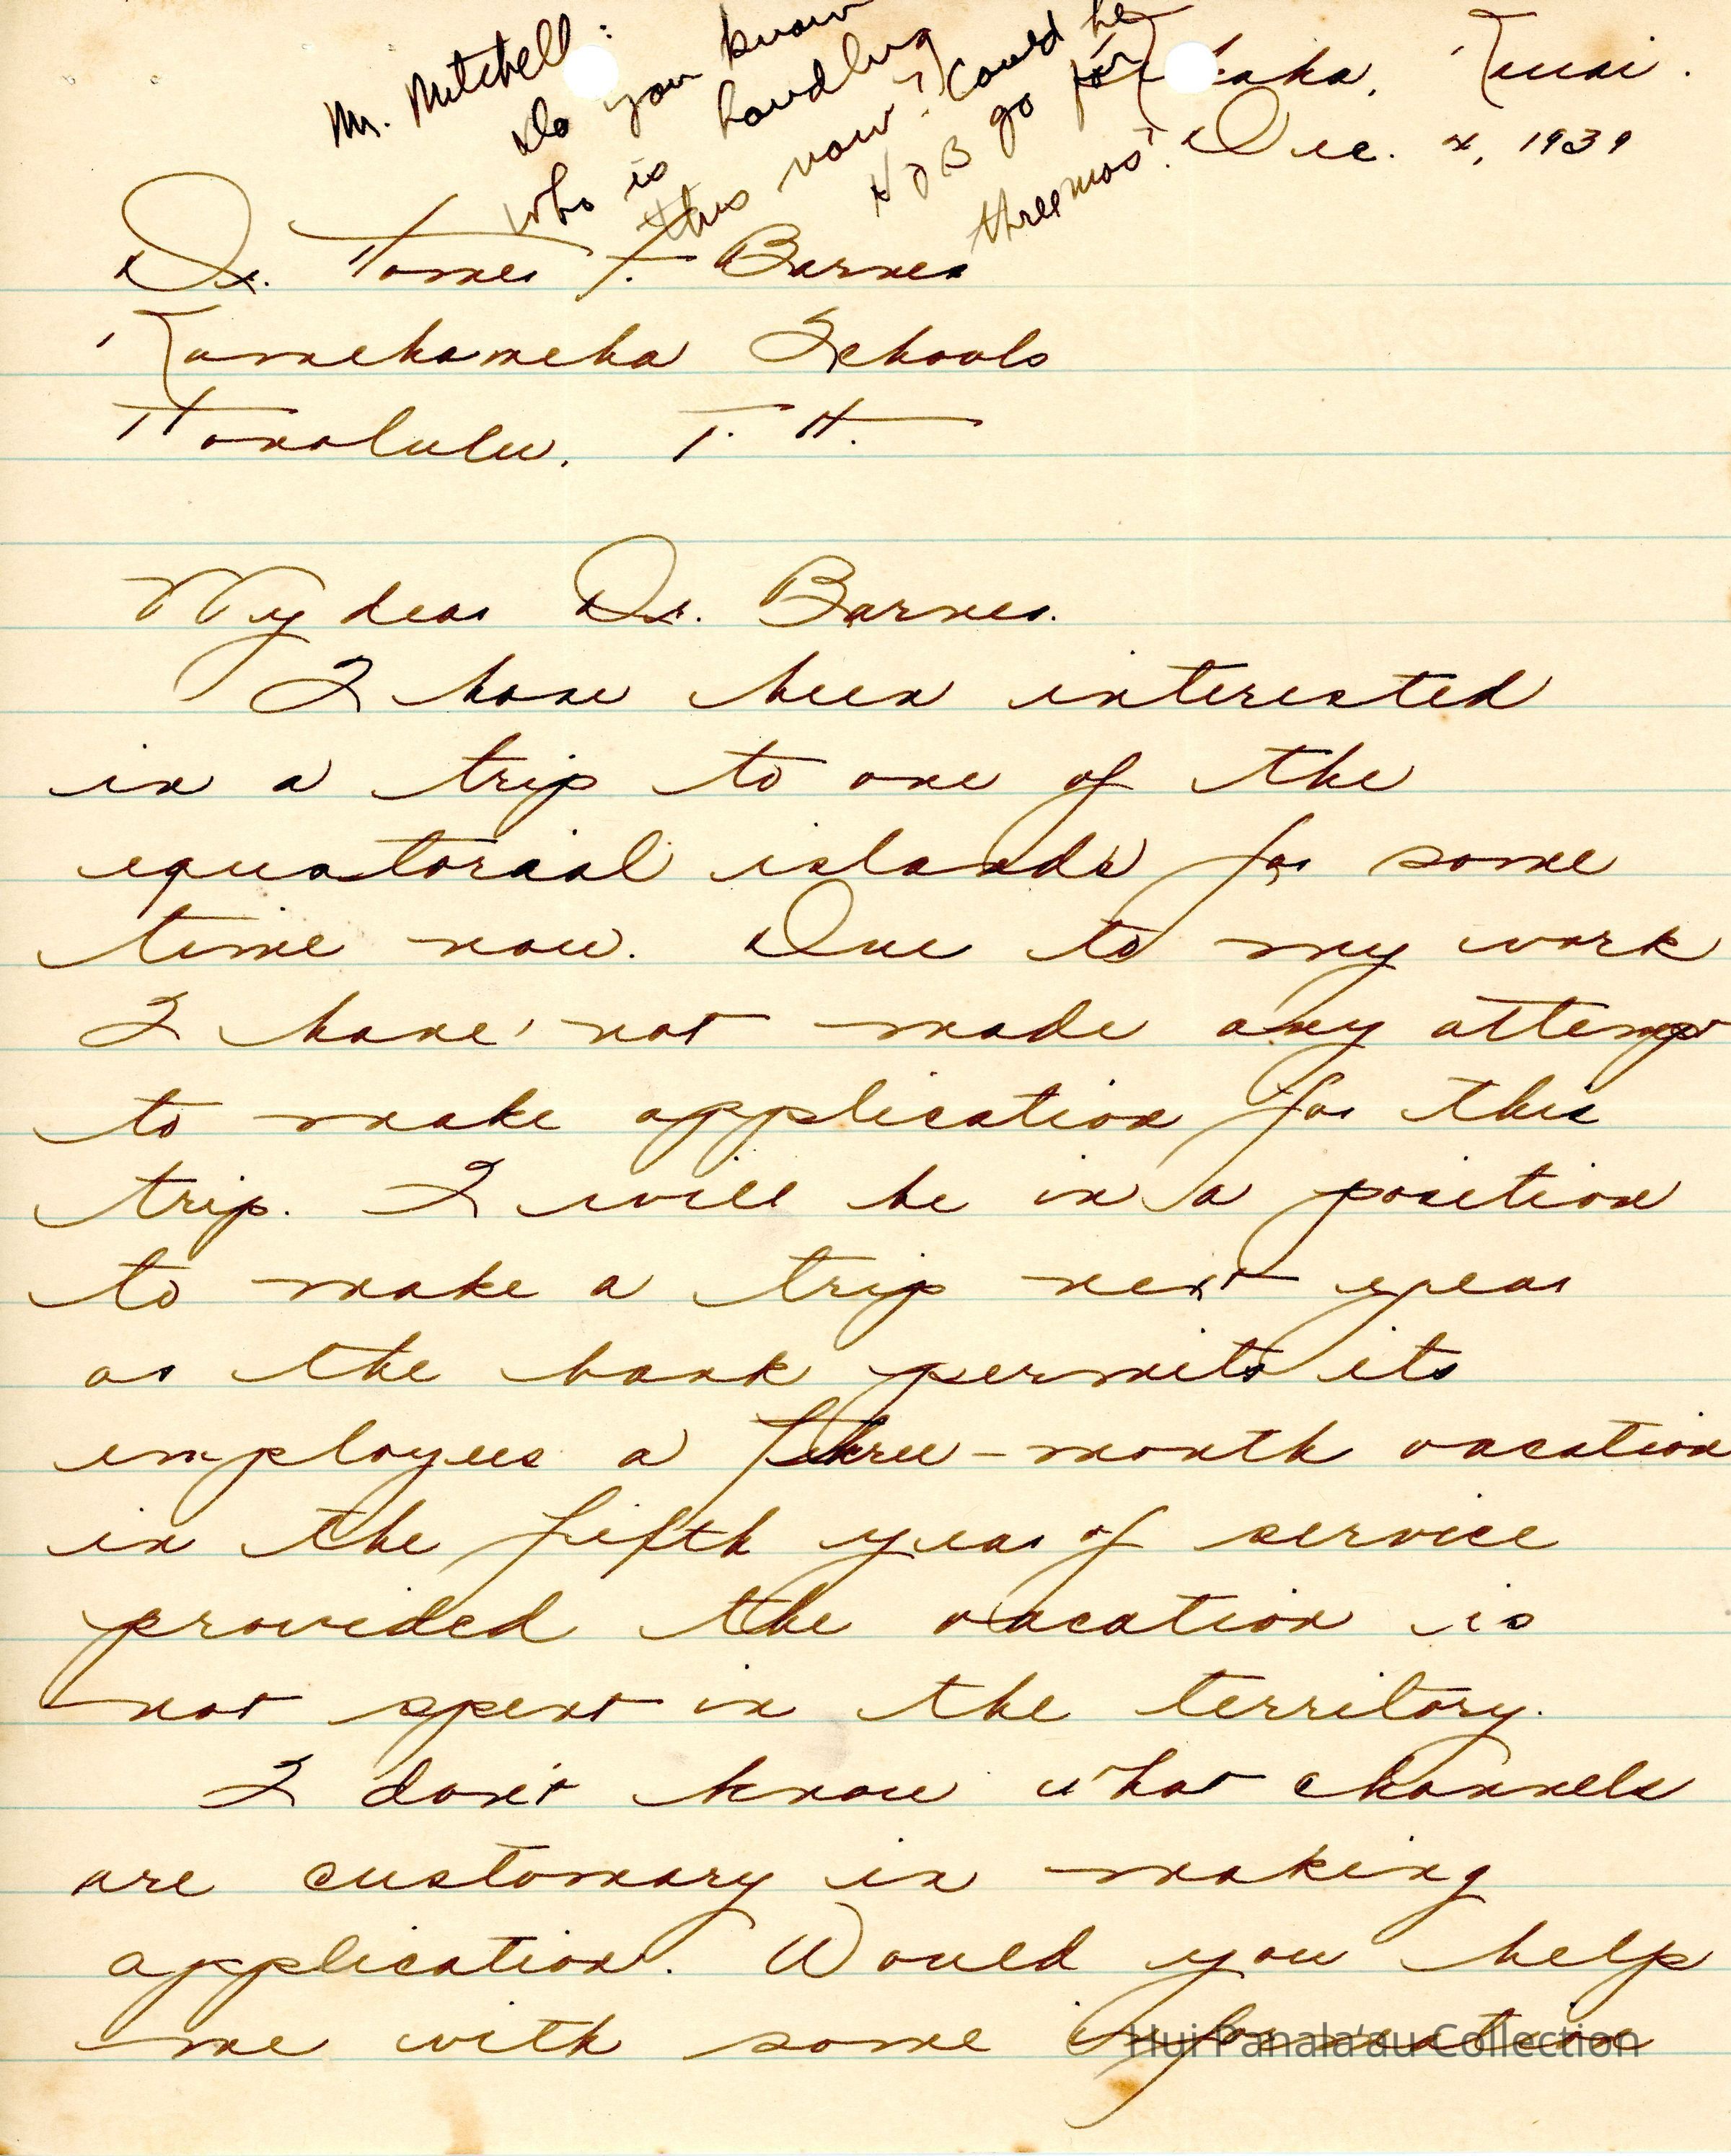 Mr. Mitchell:
Do you know
who is handling
this now? Could he
go for
three mos?
Kekaha, Kauai.
Dec. 4, 1939
Dr. Homer F. Barnes
Kamehameha Schools
Honolulu. T. H.
My dear Dr. Barnes.
I have been interested
in a trip to one of the
equatorial islands for some
time now. Due to my work
I have not made any attempt
to make application for this
trip. I will be in a position
to make a trip next year
as the bank permits its
employees a three-month vacation
in the fifth year of service
provided the vacation is
not spent in the territory.
I don't know what channels
are customary in making
application. Would you help
me with some information
Hui Panala'au Collection